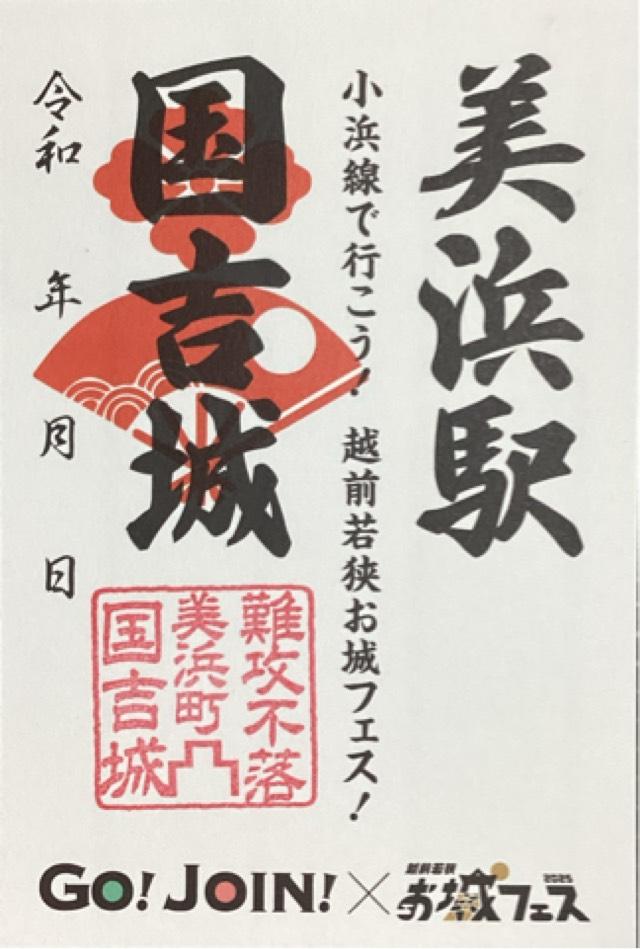 美浜駅
小浜線で行こう！ 越前若狭お城フェス！
国吉城
令和 年 月 日
難攻不落
美浜町
国吉城
GO! JOIN!×越前若狭お城フェス